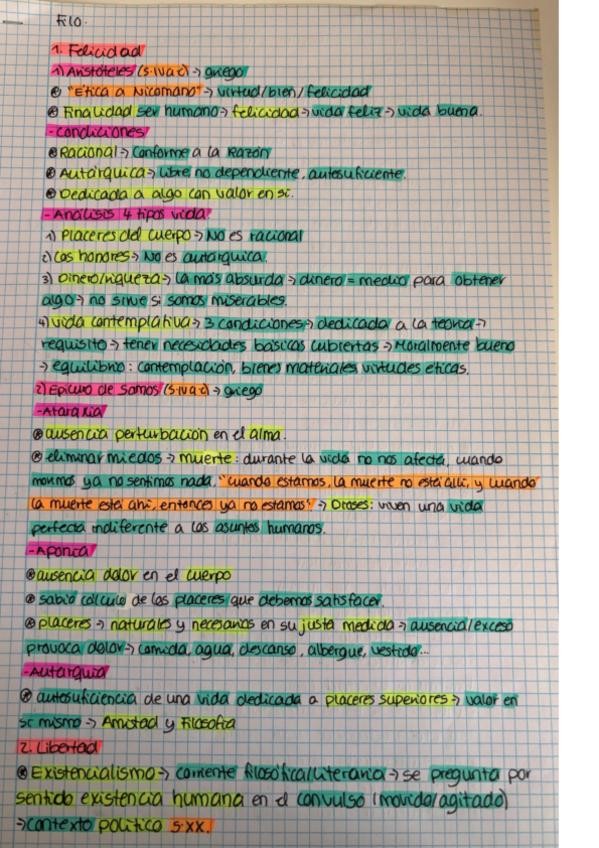 Filo.
1. Felicidad
1) Aristóteles (s.IV a.c) → griego
"Etica a Nicomano" → virtud/bien/felicidad
Finalidad ser humano → felicidad → vida feliz → vida buena.
-Condiciones
Racional → Conforme a la Razón
Autárquica → libre no dependiente, autosuficiente.
Dedicada a algo con valor en sí.
-Análisis 4 tipos vida
1) Placeres del cuerpo → No es racional
2) Los honores → No es autárquica.
3) Dinero/riqueza → la más absurda → dinero = medio para obtener
algo → no sirve si somos miserables.
4) vida contemplativa → 3 condiciones → dedicada a la teoría →
requisito → tener necesidades básicas cubiertas → Moralmente bueno
→ equilibrio: contemplación, bienes materiales virtudes eticas.
2) Epicuro de Samos (s.IV a.c) → griego
-Ataraxia
ausencia perturbación en el alma.
eliminar miedos → muerte: durante la vida no nos afecta, cuando
morimos ya no sentimos nada, "cuando estamos, la muerte no está allí, y cuando
la muerte está ahí, entonces ya no estamos". → Dioses: viven una vida
perfecta indiferente a los asuntos humanos.
-Aponía
ausencia dolor en el cuerpo
sabio cálculo de los placeres que debemos satisfacer.
placeres → naturales y necesarios en su justa medida → ausencia/exceso
provoca dolor → comida, agua, descanso, albergue, vestido...
-Autarquía
autosuficiencia de una vida dedicada a placeres superiores → valor en
sí mismo → Amistad y Filosofía
2. Libertad
Existencialismo → corriente filosófica/literaria → se pregunta por
sentido existencia humana en el convulso (movido/agitado)
→ contexto político s.XX.